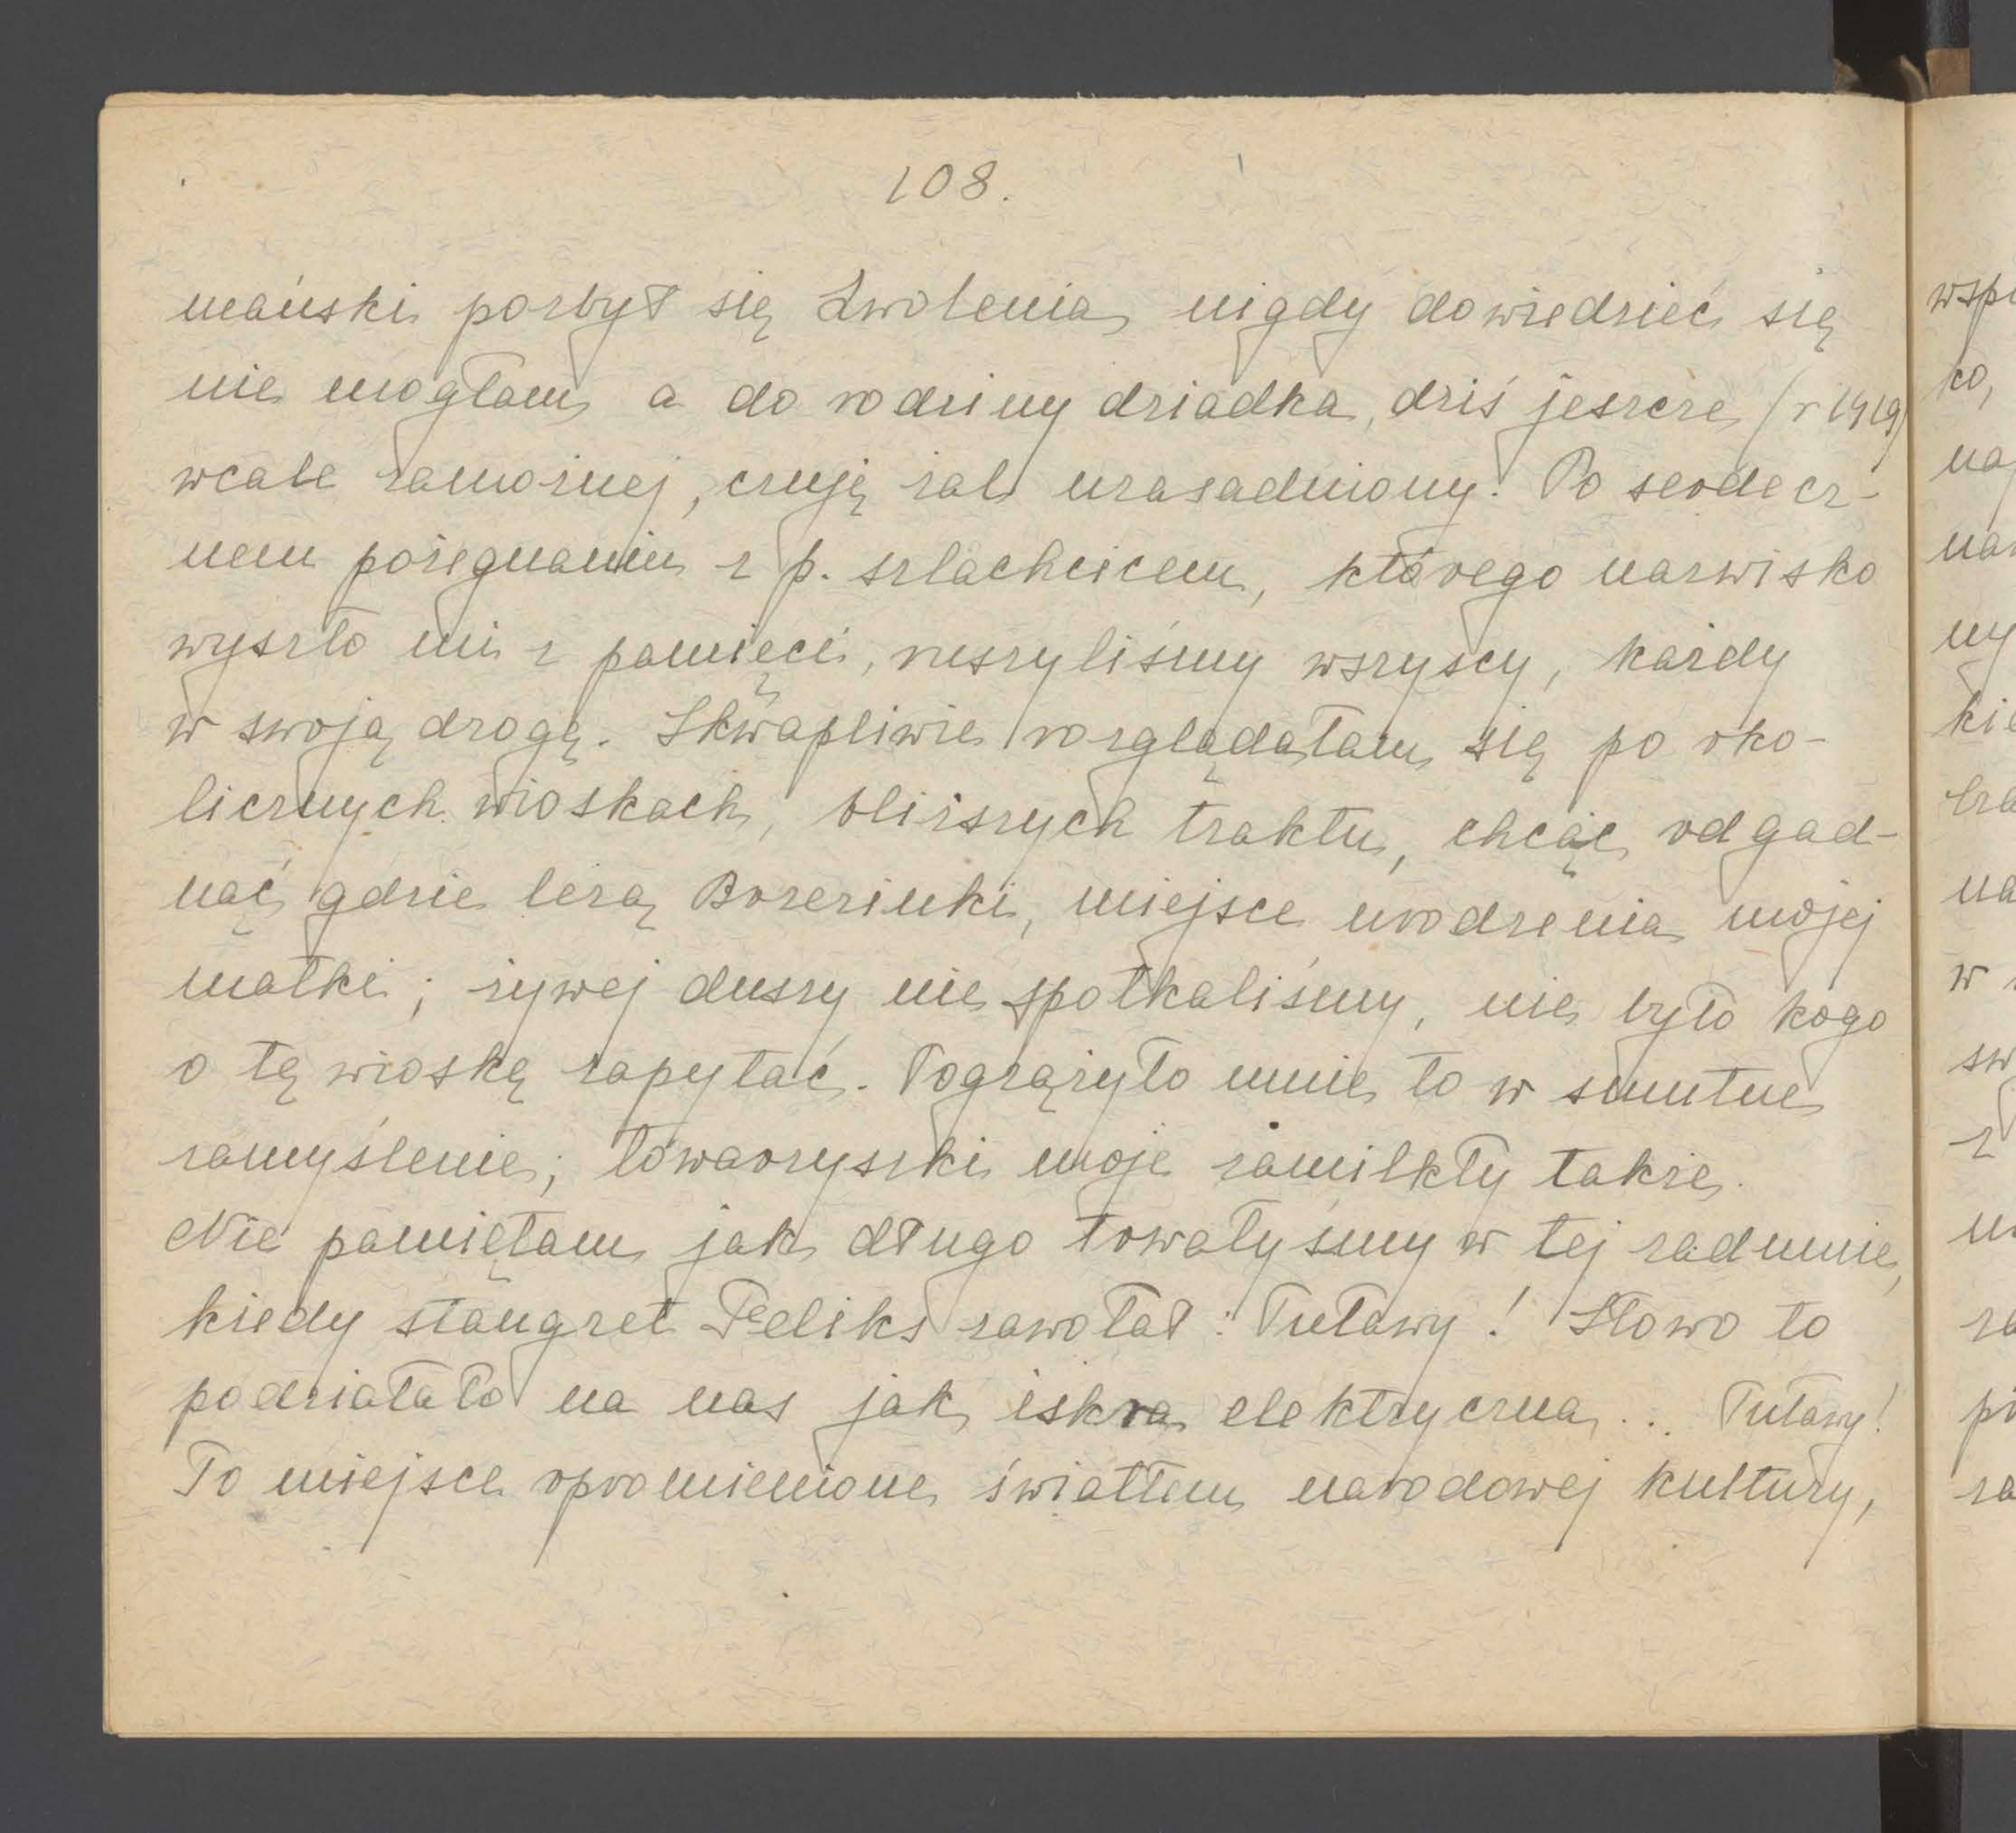 108.
mański pozbył się Zwolenia nigdy dowiedzieć się
nie mogłam a do rodziny dziadka, dziś jeszcze (r 1919)
wcale zamożnej, czuję żal uzasadniony. Po serdecz-
nem pożegnaniu z p. szlachcicem, którego nazwisko
wyszło mi z pamięci, ruszyliśmy wszyscy, każdy
w swoją drogę. Skwapliwie rozglądałam się po oko-
licznych wioskach, bliższych traktu, chcąc odgad-
nąć gdzie leżą Borzezinki, miejsce urodzenia mojej
matki; żywej duszy nie spotkaliśmy, nie było kogo
o tę wioskę zapytać. Pogrążyło mnie to w smutne
zamyślenie; towarzyszki moje zamilkły także.
Nie pamiętam jak długo trwałyśmy w tej zadumie,
kiedy stangret Feliks zawołał: Puławy! Słowo to
podziałało na nas jak iskra elektryczna... Puławy!
To miejsce opromienione światłem narodowej kultury,
wsp
ko,
na
ny
kie
na
w
sw
z
za
za